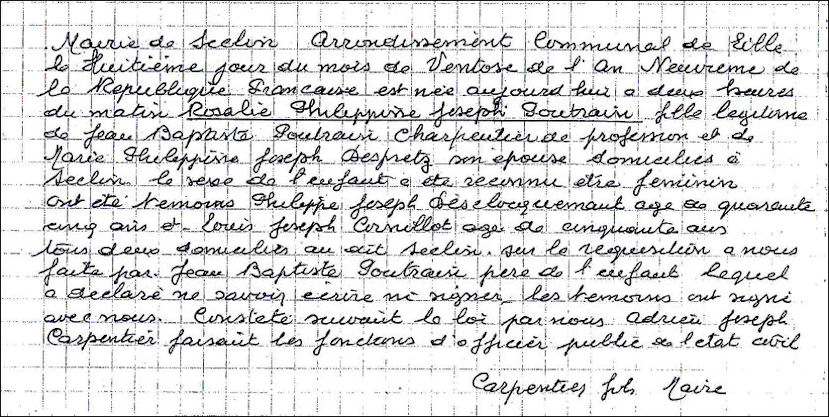 Mairie de Seclin Arrondissement Communal de Lille
le Huitième jour du mois de Ventose de l'An Neuvieme de
la Republique Francaise est née aujourd'hui a deux heures
du matin Rosalie Philippine Joseph Poutrain fille legitime
de Jean Baptiste Poutrain Charpentier de profession et de
Marie Philippine Joseph Despretz son epouse domicilies à
Seclin le sexe de l'enfant a ete reconnu etre feminin
ont été temoins Philippe Joseph age de quarante
cinq ans et Louis Joseph Cornillot age de cinquante ans
tous deux domicilies au dit Seclin. sur la requisition a nous
faite par Jean Baptiste Poutrain pere de l'enfant lequel
a declaré ne savoir écrire ni signer les temoins ont signé
avec nous. Constaté suivant la loi par nous Adrien Joseph
Carpentier faisant les fonctions d'officier public de l'etat civil
Carpentier fils Maire